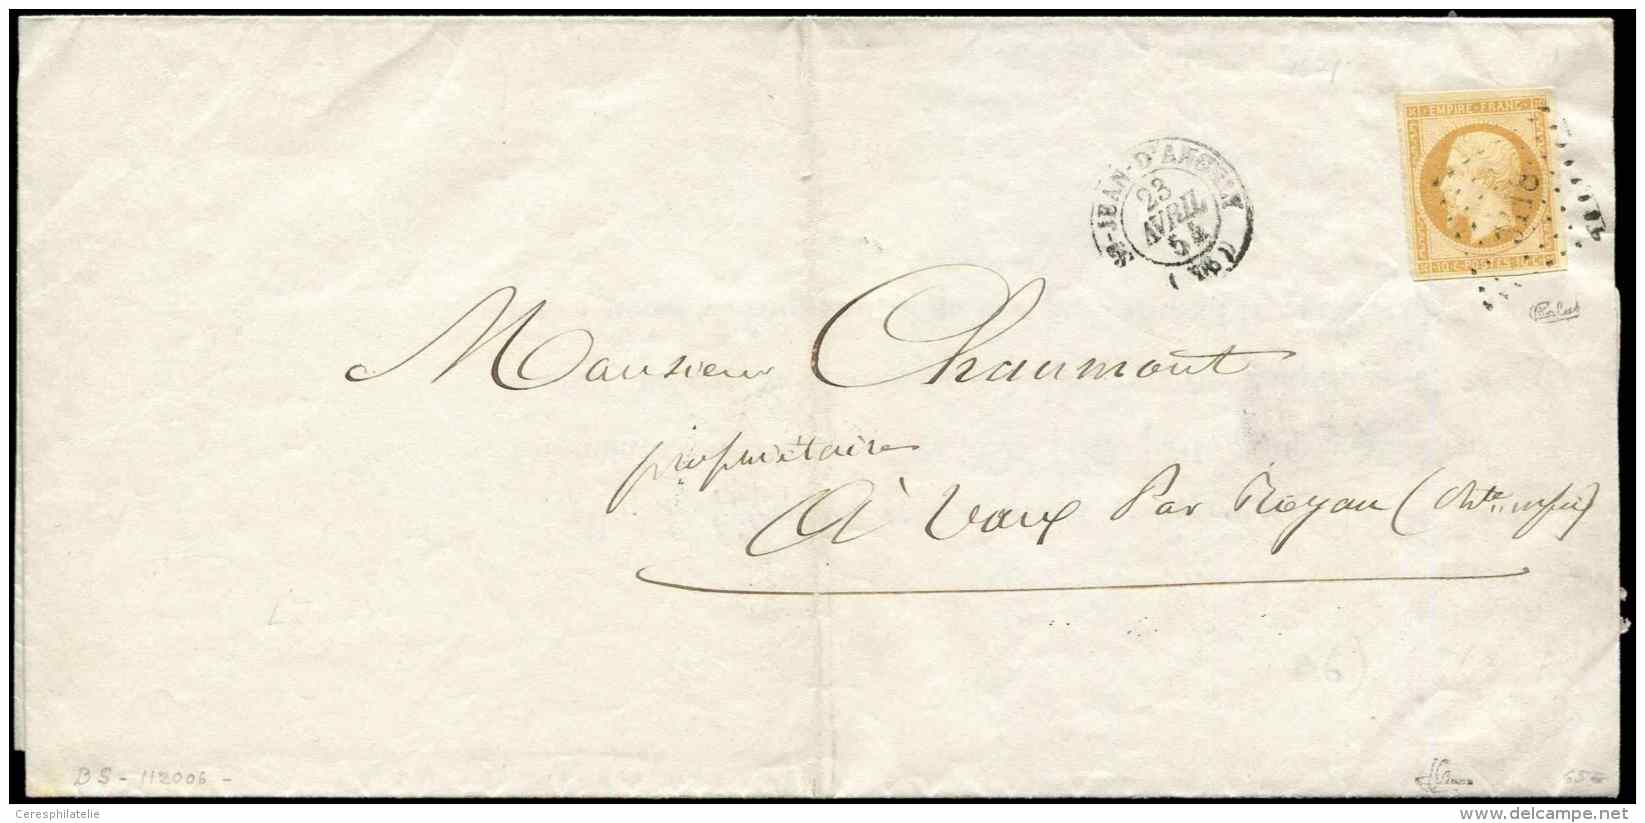 EMPIRE · FRANC ·
10 C · POSTES 10 C
Sᵀ-JEAN-D'ANGELY
23
AVRIL
54
Monsieur Chaumont
propriétaire
à Vaux Par Royan (Chte infre)
BS - 112006 -
Ceresphilatelie
www.delcampe.net